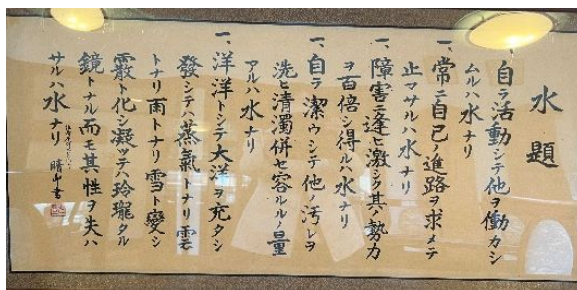 水題
一、自ラ活動シテ他ヲ働カシ
ムルハ水ナリ
一、常ニ自己ノ進路ヲ求メテ
止マサルハ水ナリ
一、障害ニ逢ヒ激シク其ノ勢力
ヲ百倍シ得ルハ水ナリ
一、自ラ潔ウシテ他ノ汚レヲ
洗ヒ清濁併セ容ルルノ量
アルハ水ナリ
一、洋洋トシテ大洋ヲ充タシ
發シテハ蒸氣トナリ雲
トナリ雨トナリ雪ト變シ
霰ト化シ凝ツテハ玲瓏タル
鏡トナル而モ其性ヲ失ハ
サルハ水ナリ
晴山書